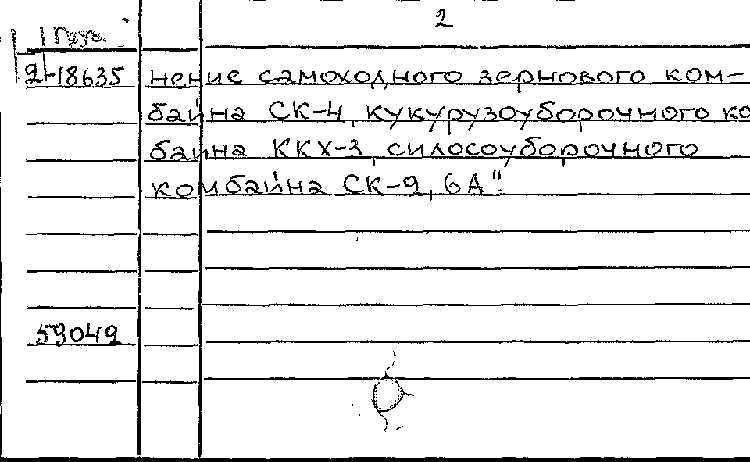 2
Груз.
2-18635 нение самоходного зернового ком-
байна СК-4, кукурузоуборочного ко
байна ККХ-3, силосоуборочного
комбайна СК-2,6А".
59049